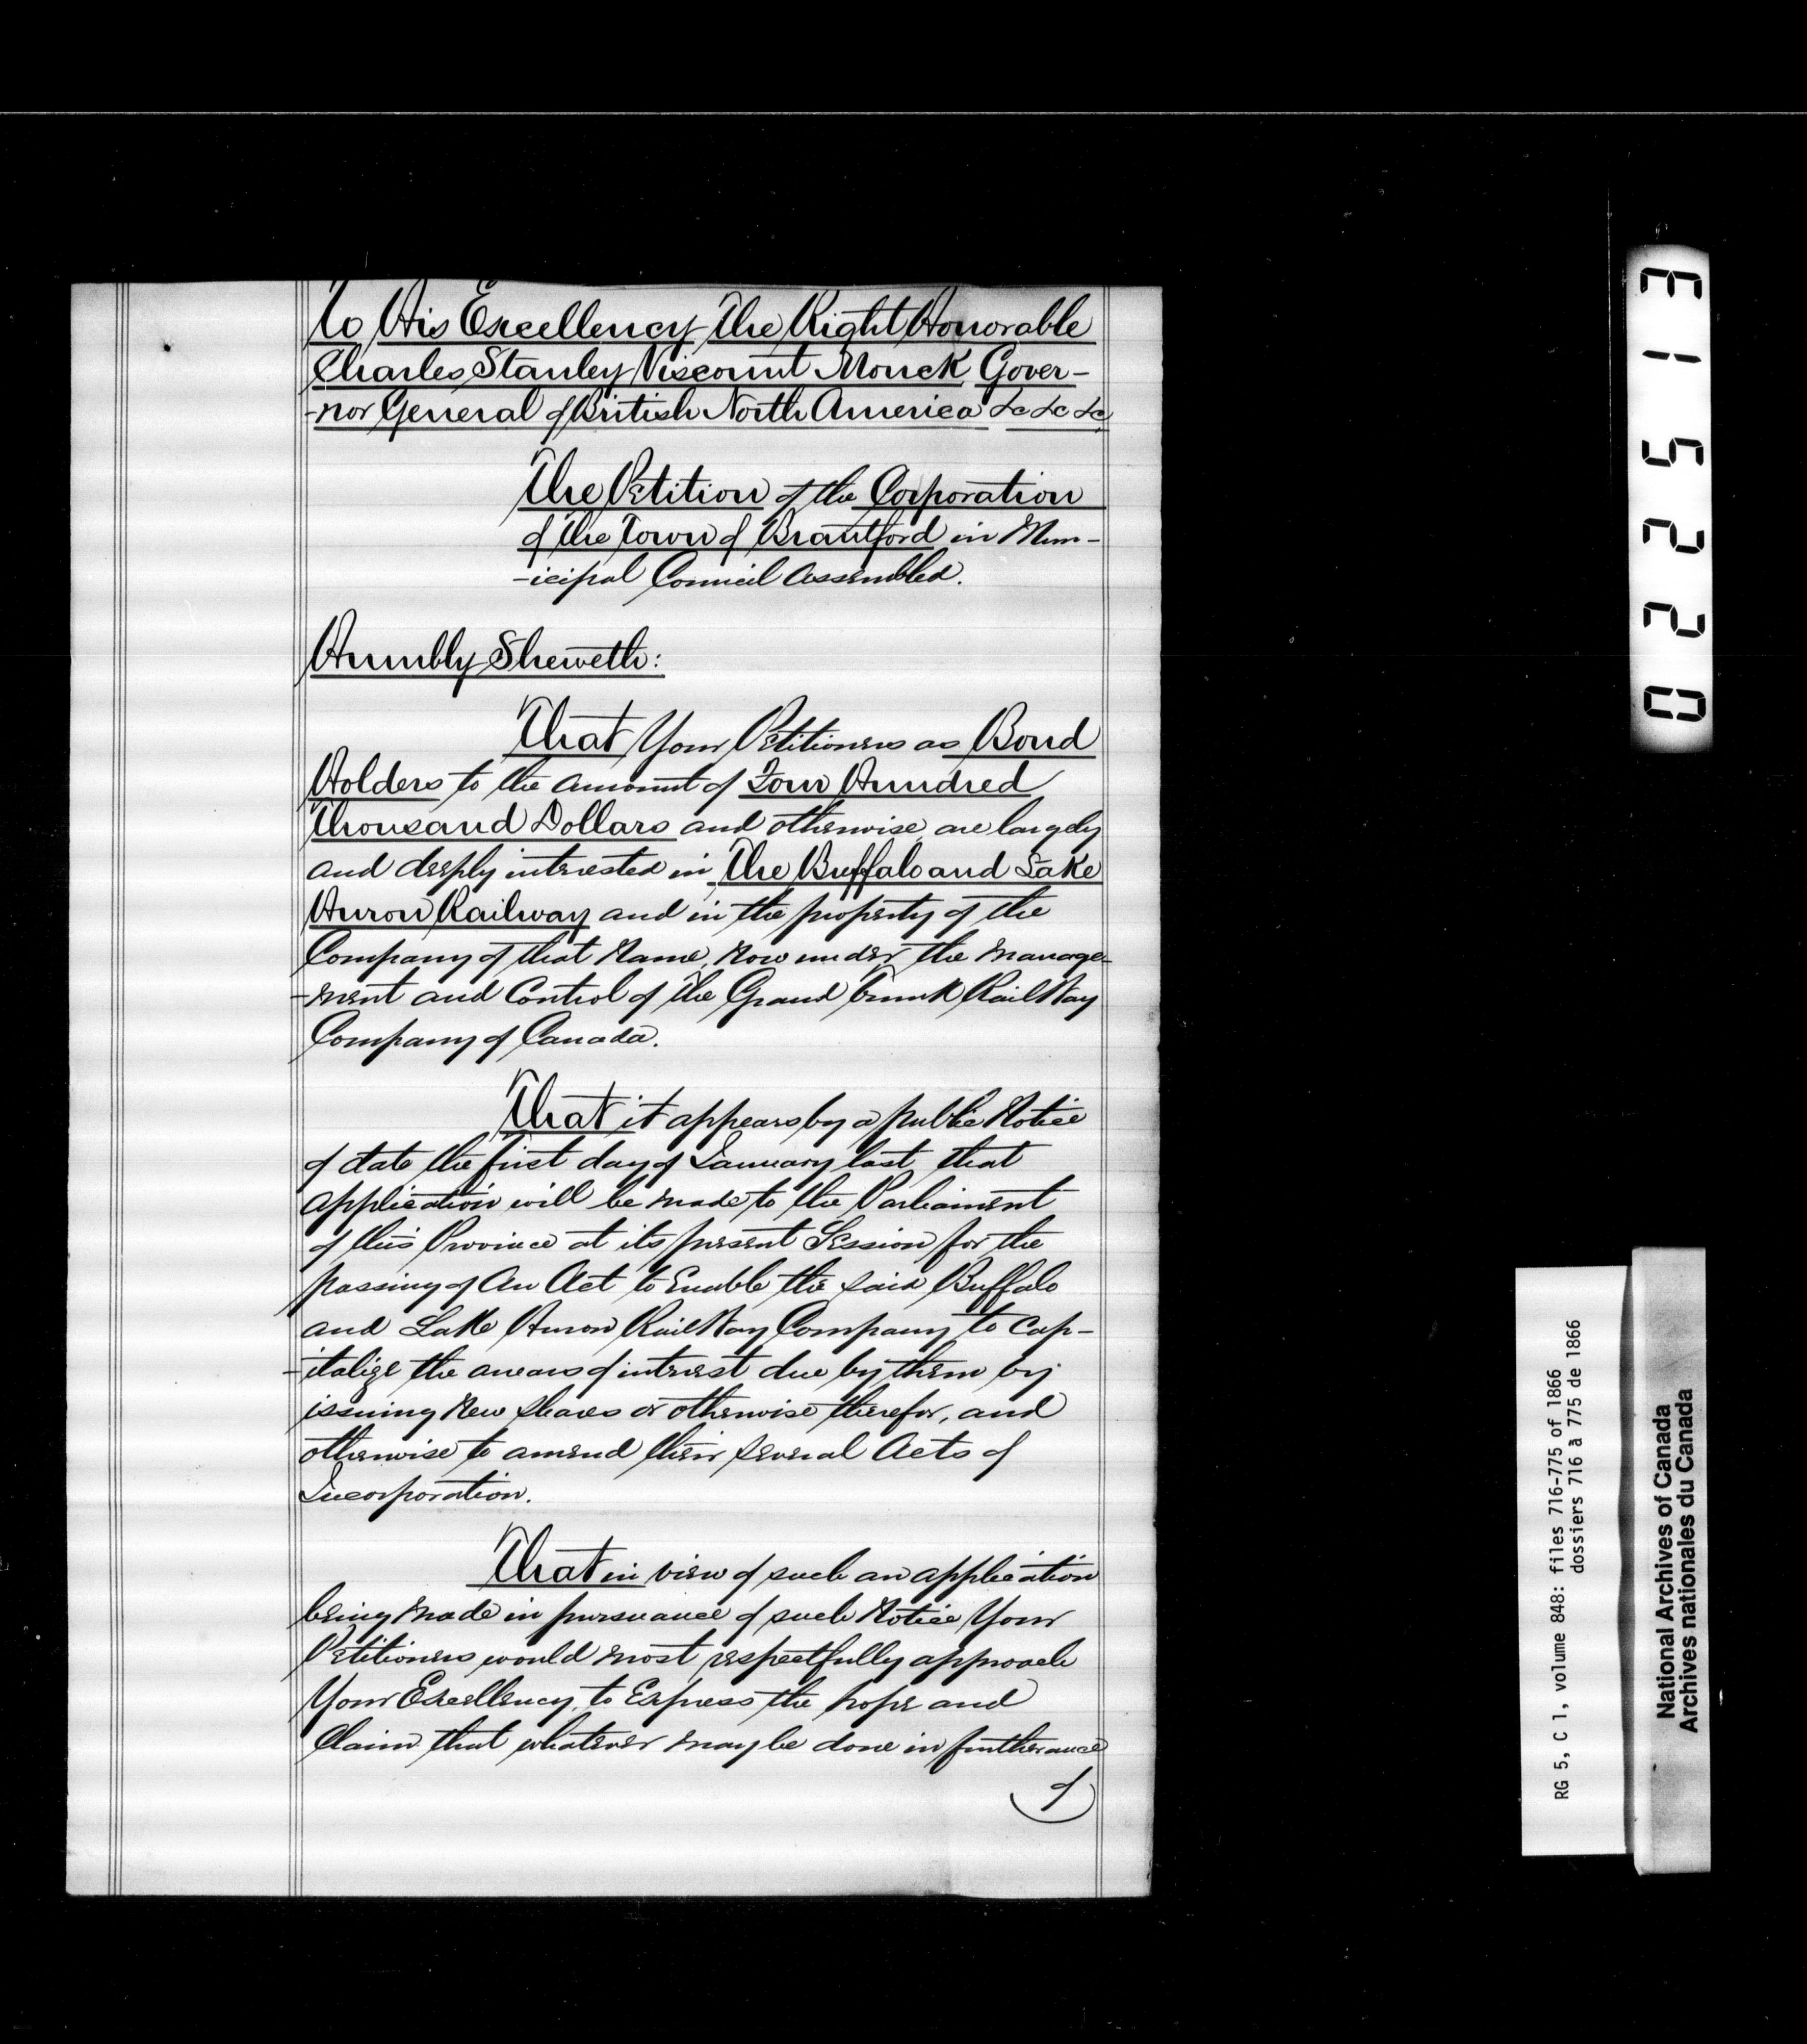 To His Excellency The Right Honorable
Charles Stanley Viscount Monck Gover-
-nor General of British North America &c &c &c
The Petition of the Corporation
of the Town of Brantford in Mun-
-icipal Council Assembled.
Humbly Sheweth:
That Your Petitioners as Bond
Holders to the amount of Four Hundred
Thousand Dollars and otherwise, are largely
and deeply interested in The Buffalo and Lake
Huron Railway and in the property of the
Company of that Name, Now under the manage-
-ment and Control of The Grand Trunk RailWay
Company of Canada.
That it appears by a public Notice
of date the first day of January last, that
application will be made to the Parliament
of this Province at its present Session for the
passing of An Act to Enable the said Buffalo
and Lake Huron RailWay Company to Cap-
-italize the arrears of interest due by them by
issuing New Shares or otherwise therefor, and
otherwise to amend their several Acts of
Incorporation.
That in view of such an application
being made in pursuance of such Notice Your
Petitioners would most respectfully approach
Your Excellency, to Express the hope and
Claim that whatever may be done in furtherance
of
0 2 2 5 1 3
RG 5, C 1, volume 848: files 716-775 of 1866
dossiers 716 à 775 de 1866
National Archives of Canada
Archives nationales du Canada